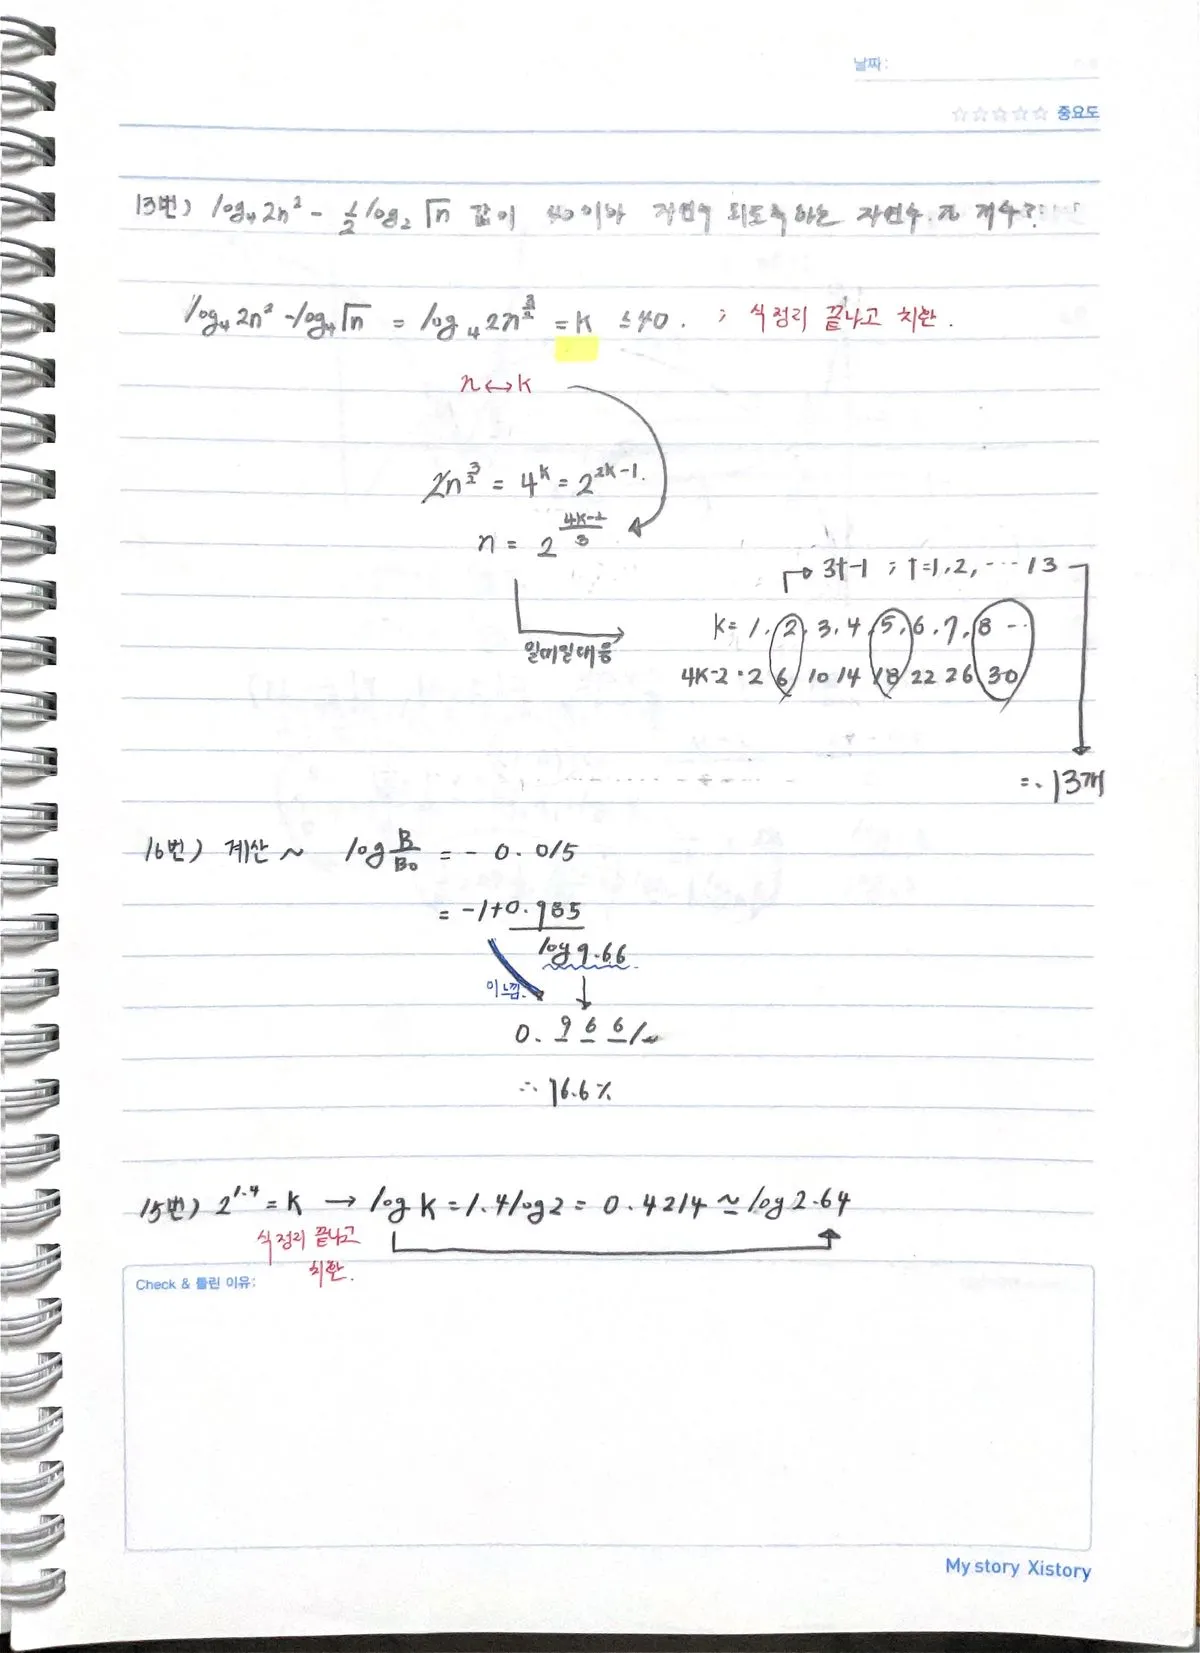 날짜:
☆☆☆☆☆ 중요도
13번) log₄2n² - 1/2 log₂√n 값이 40이하 자연수 되도록하는 자연수 n 개수?
log₄2n² - log₄√n = log₄2n^(3/2) = k ≤ 40. ; 식정리 끝나고 치환.
n ↔ k
2n^(3/2) = 4^k = 2^(2k-1).
n = 2^((4k-2)/3)
→ 3t-1 ; t=1,2, ··· 13
k= 1, 2, 3, 4, 5, 6, 7, 8 ··
일대일대응
4k-2 · 2 6 10 14 18 22 26 30
∴ 13개
16번) 계산 ~ log B/B₀ = - 0.015
= -1+0.985
log 9.66
이느낌.
↓
0. 9 6 6
∴ 96.6%
15번) 2^1.4 = k → log k = 1.4log2 = 0.4214 ≃ log2.64
식정리 끝나고
치환.
Check & 틀린 이유:
My story Xistory